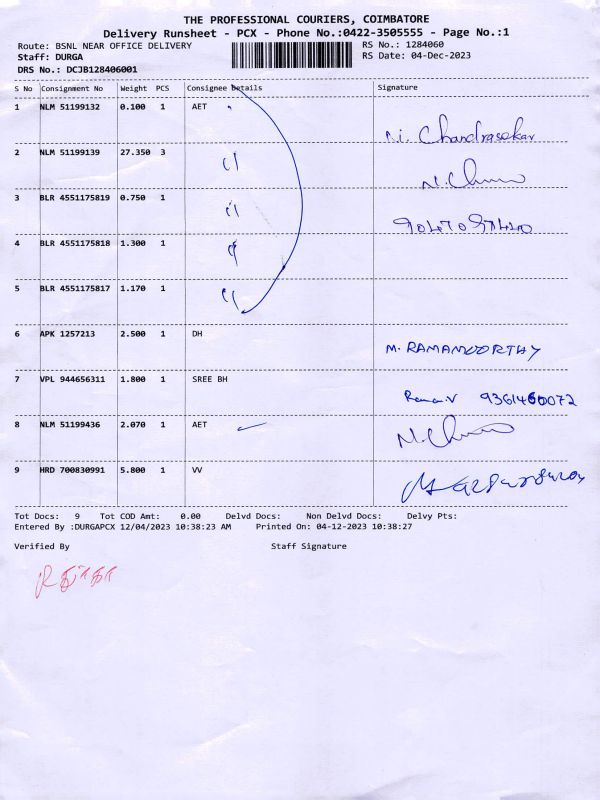 THE PROFESSIONAL COURIERS, COIMBATORE
Delivery Runsheet - PCX - Phone No.:0422-3505555 - Page No.:1
Route: BSNL NEAR OFFICE DELIVERY RS No.: 1284060
Staff: DURGA RS Date: 04-Dec-2023
DRS No.: DCJB128406001
S No Consignment No Weight PCS Consignee Details Signature
1 NLM 51199132 0.100 1 AET
Chandrasekar
2 NLM 51199139 27.350 3 "
3 BLR 4551175819 0.750 1 "
4 BLR 4551175818 1.300 1 "
5 BLR 4551175817 1.170 1 "
6 APK 1257213 2.500 1 DH M. RAMAMOORTHY
7 VPL 944656311 1.800 1 SREE BH 9361460072
8 NLM 51199436 2.070 1 AET
9 HRD 700830991 5.800 1 VV
Tot Docs: 9 Tot COD Amt: 0.00 Delvd Docs: Non Delvd Docs: Delvy Pts:
Entered By :DURGAPCX 12/04/2023 10:38:23 AM Printed On: 04-12-2023 10:38:27
Verified By Staff Signature